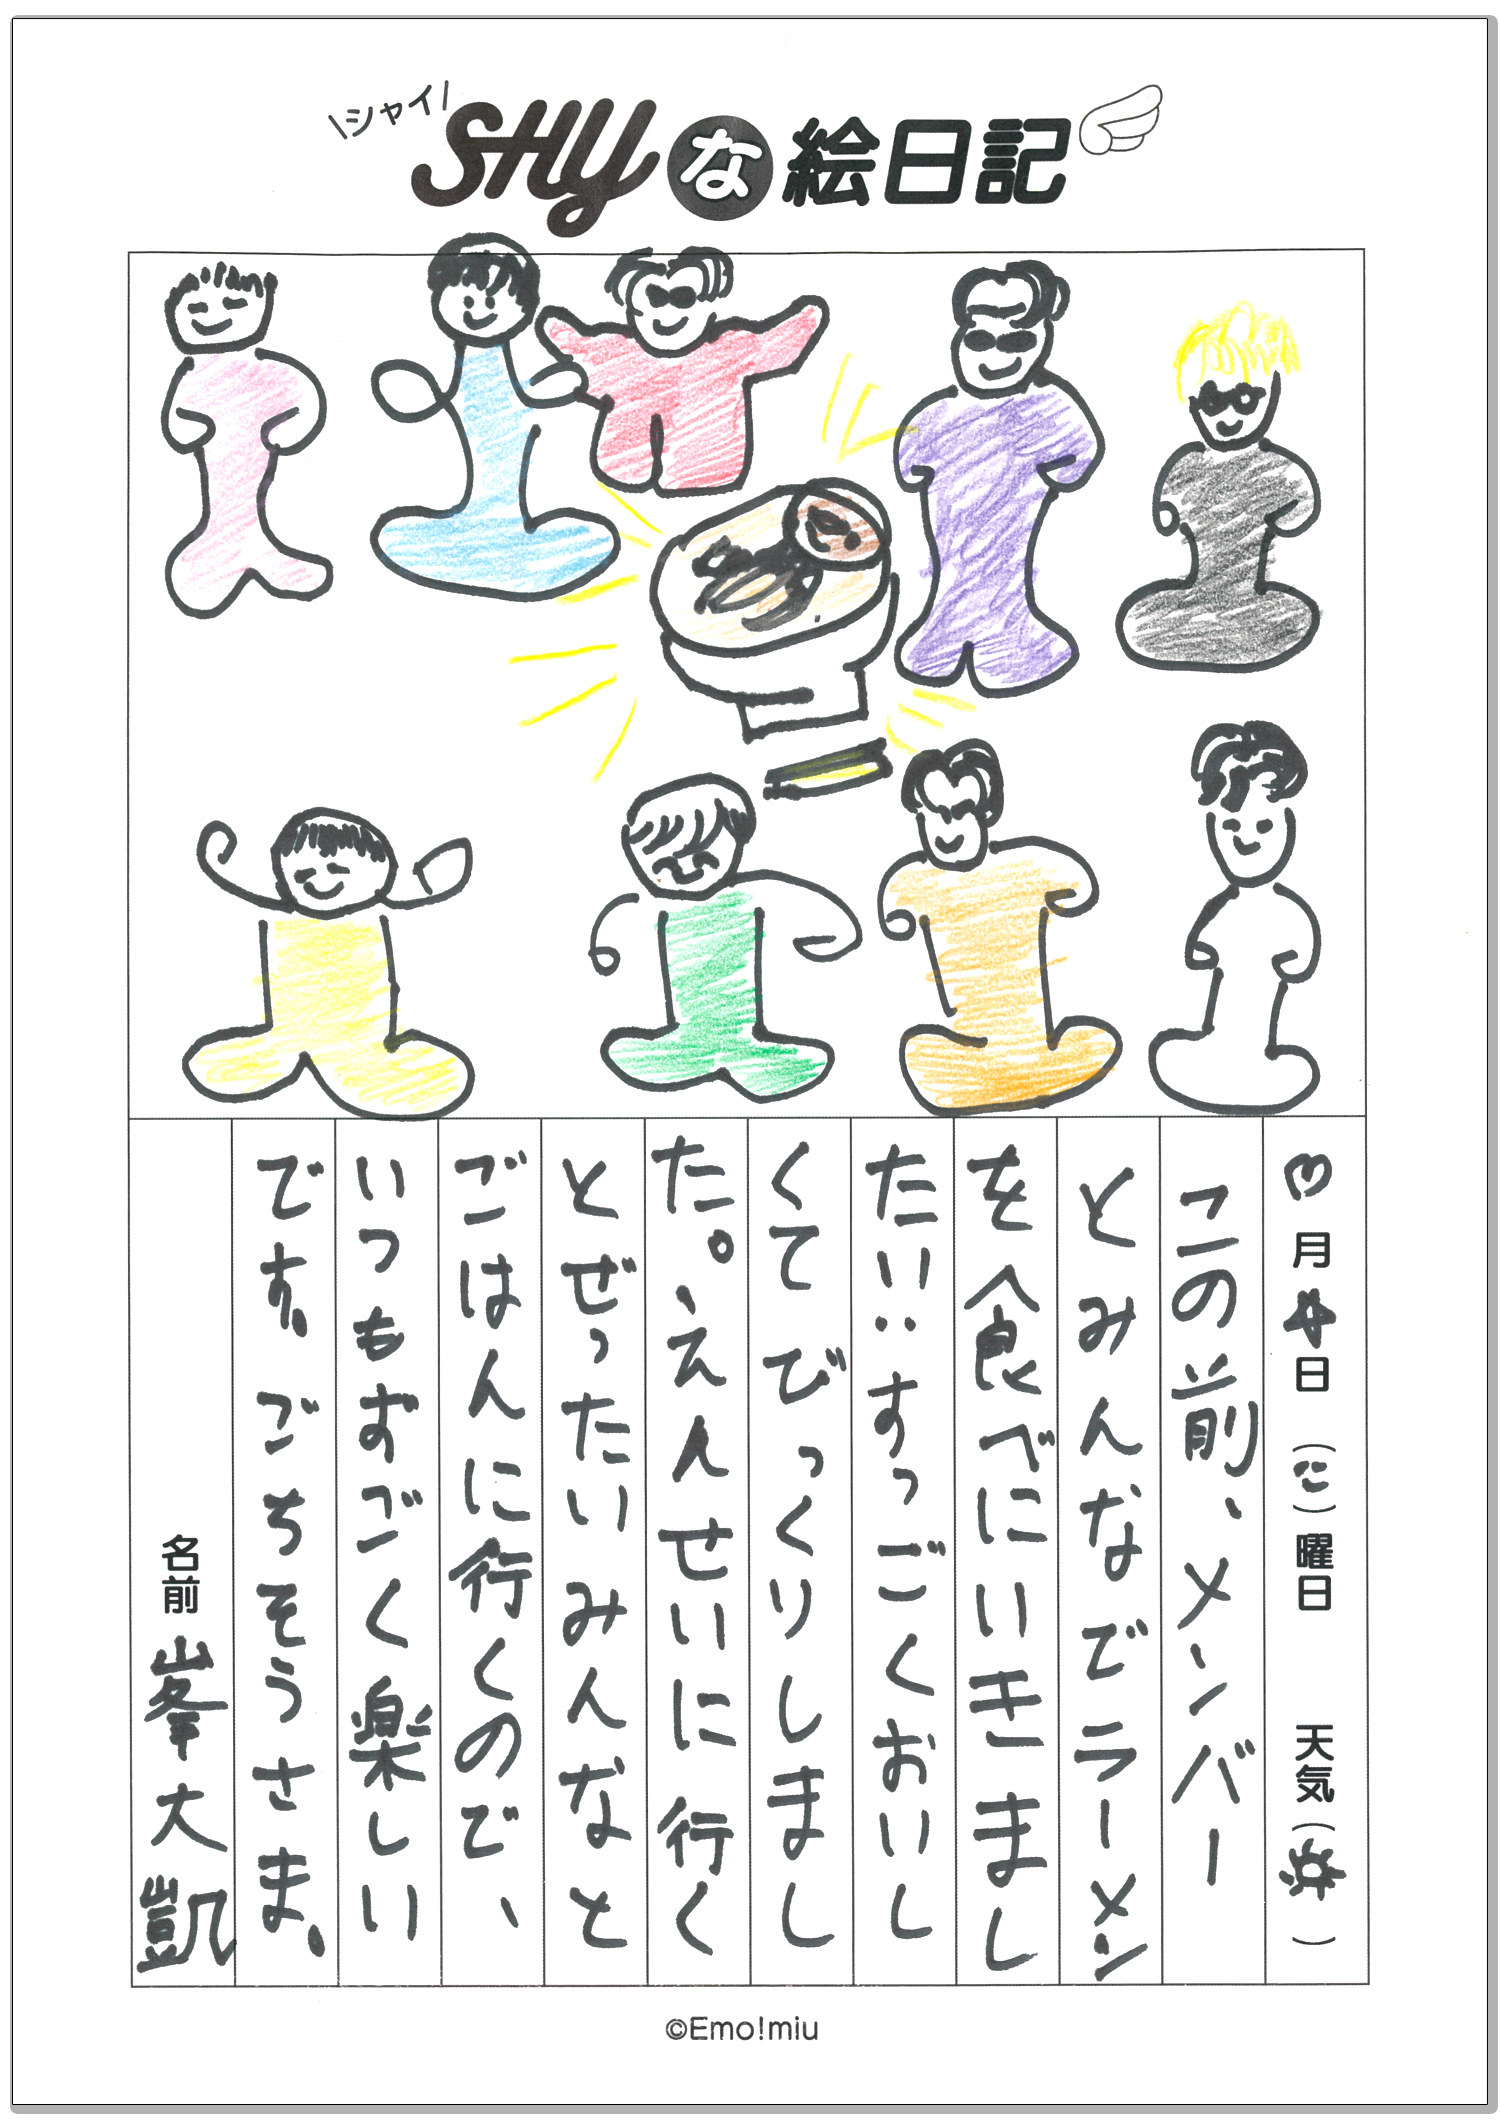 \シャイ/
SHYな絵日記
♡月☆日（）曜日　天気（）
この前、メンバー
とみんなでラーメン
を食べにいきまし
たい‥すっごくおいし
くてびっくりしまし
た。えんせいに行く
とぜったいみんなと
ごはんに行くので、
いつもすごく楽しい
です、ごちそうさま、
名前 峯大凱
©Emo!miu